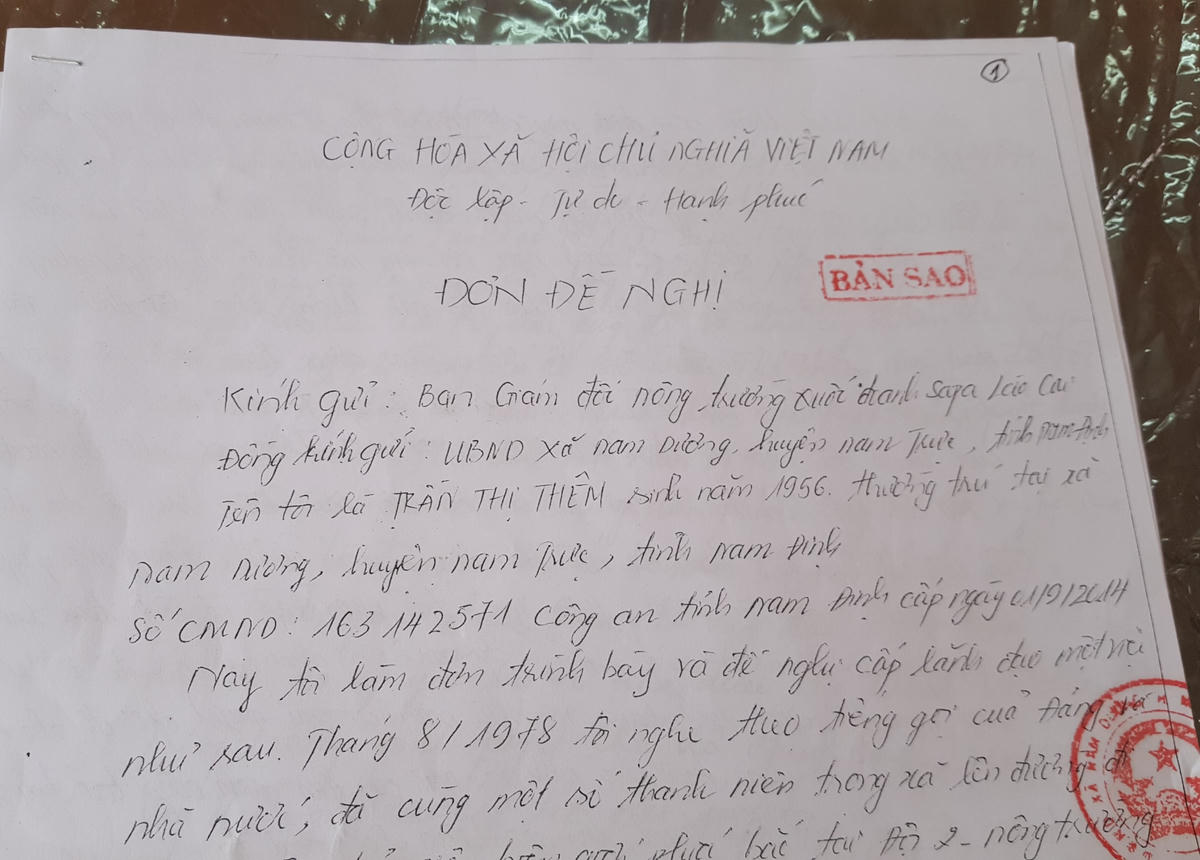 1
CỘNG HÒA XÃ HỘI CHỦ NGHĨA VIỆT NAM
Độc lập - Tự do - Hạnh phúc
ĐƠN ĐỀ NGHỊ
BẢN SAO
Kính gửi: Ban Giám đốc nông trường xuất Sapa Lào Cai
Đồng kính gửi: UBND xã nam Dương, huyện nam Trực, tỉnh nam Định
Tên tôi là TRẦN THỊ THÊM sinh năm 1956. thường trú tại xã
nam Dương, huyện nam Trực, tỉnh nam Định
Số CMND: 163142571 Công an tỉnh nam Định cấp ngày 01/9/2014
Nay tôi làm đơn trình bày và đề nghị cấp lãnh đạo một việc
như sau. Tháng 8/1978 tôi nghe theo tiếng gọi của Đảng và
nhà nước, đã cùng một số thanh niên trong xã lên đường đi
phía bắc tại Đội 2 - nông trường